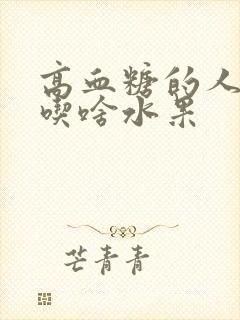 高血糖的人
喫啥水果
芒青青